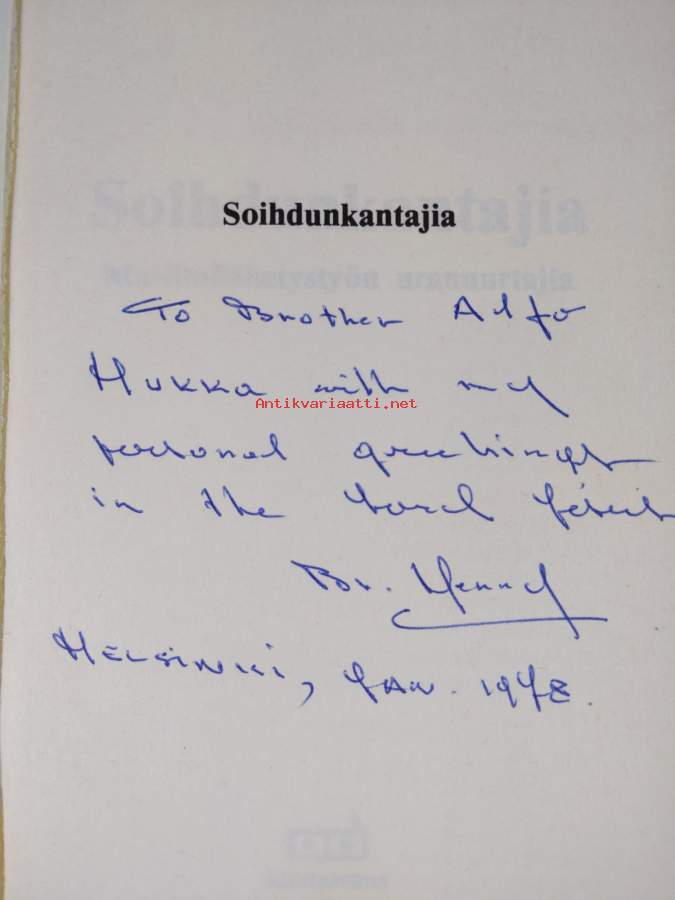 Soihdunkantajia
To Brother Alfo
Hukka with my
Antikvariaatti.net
personal greetings
in the Lord Jesus
Br. Henry
HELSINKI, JAN. 1978.